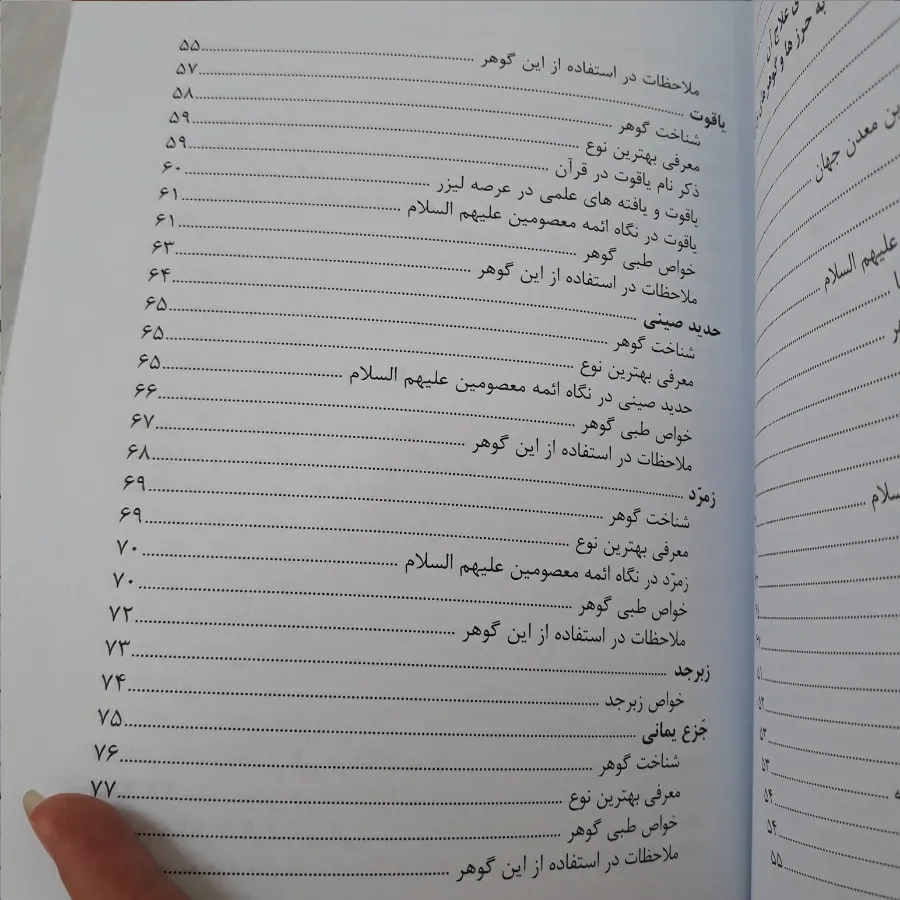 ملاحظات در استفاده از این گوهر ۵۵
یاقوت ۵۷
شناخت گوهر ۵۸
معرفی بهترین نوع ۵۹
ذکر نام یاقوت در قرآن ۵۹
یاقوت و یافته های علمی در عرصه لیزر ۶۰
یاقوت در نگاه ائمه معصومین علیهم السلام ۶۱
خواص طبی گوهر ۶۱
ملاحظات در استفاده از این گوهر ۶۳
حدید صینی ۶۴
شناخت گوهر ۶۵
معرفی بهترین نوع ۶۵
حدید صینی در نگاه ائمه معصومین علیهم السلام ۶۵
خواص طبی گوهر ۶۶
ملاحظات در استفاده از این گوهر ۶۷
زمرّد ۶۸
شناخت گوهر ۶۹
معرفی بهترین نوع ۶۹
زمرّد در نگاه ائمه معصومین علیهم السلام ۷۰
خواص طبی گوهر ۷۰
ملاحظات در استفاده از این گوهر ۷۲
زبرجد ۷۳
خواص زبرجد ۷۴
جَزع یمانی ۷۵
شناخت گوهر ۷۶
معرفی بهترین نوع ۷۷
خواص طبی گوهر
ملاحظات در استفاده از این گوهر
معدن جهان
علیهم السلام
۵۱
۵۲
۵۳
۵۴
۵۴
۵۵